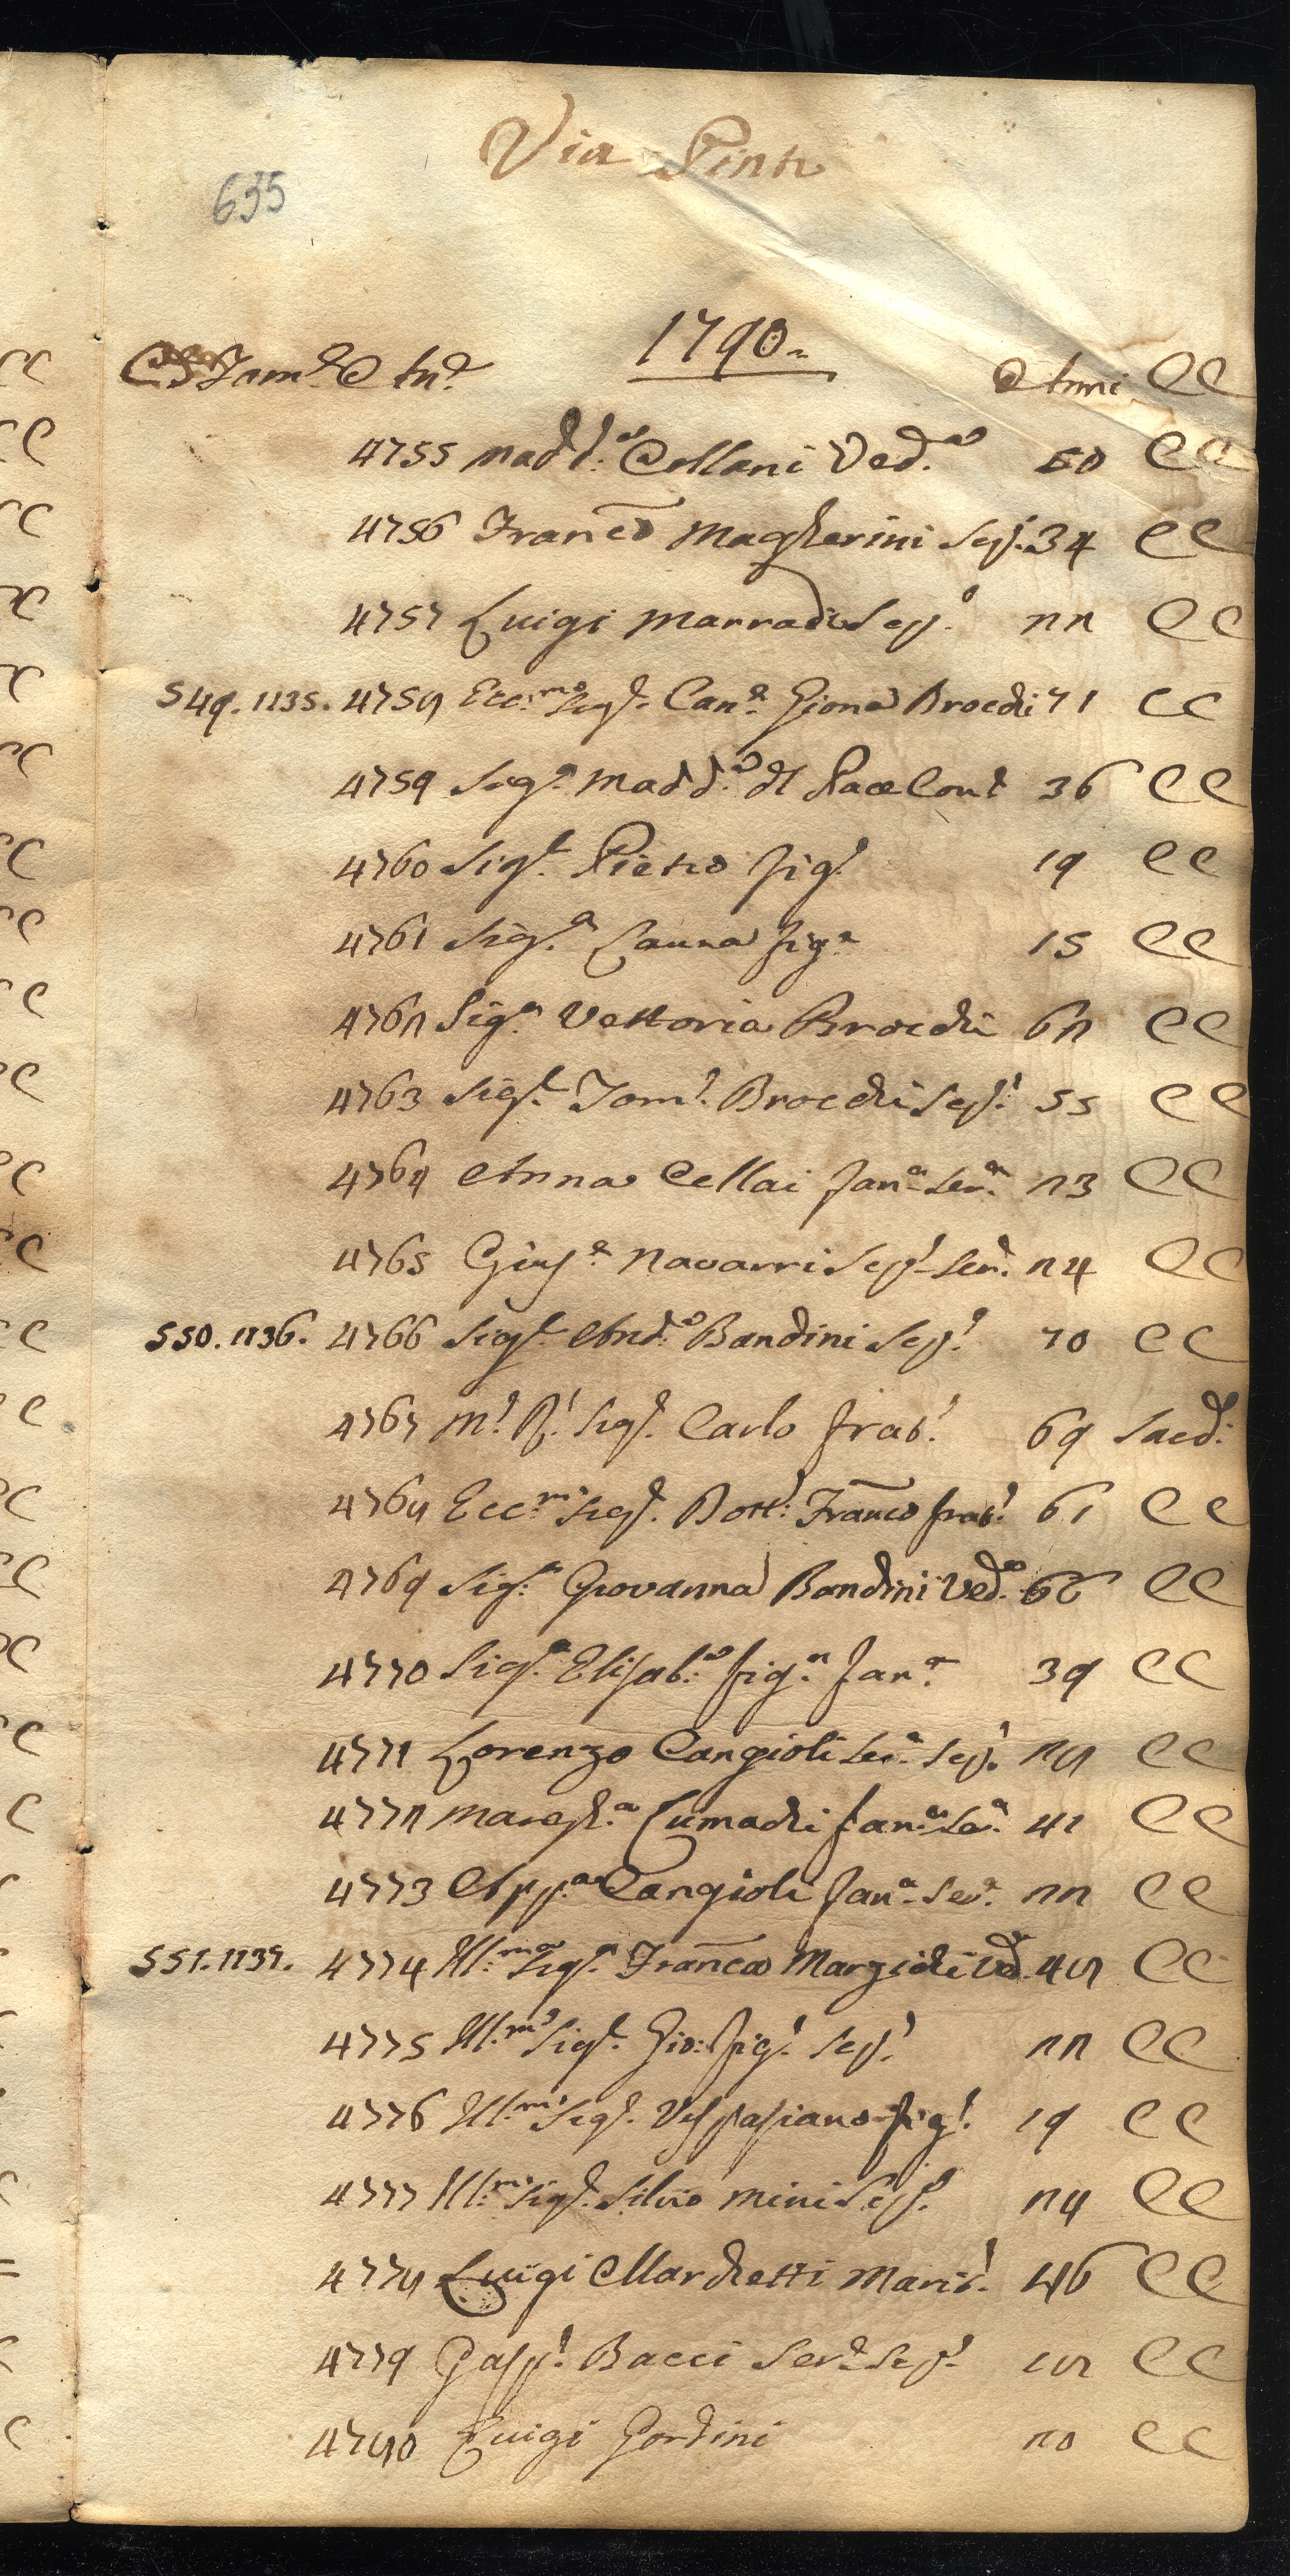 Via Pinti
635
1790.
C. Fam.e An.e Anni CC
4755 Madd.a Collani Ved.a 50 CC
4756 Franc.o Magherini Sep.o 34 CC
4757 Luigi Marradi Sep.o 22 CC
549. 1135. 4758 Ecc.mo Sig.r Can.e Giona Brocchi 71 CC
4759 Sig.a Madd.a del Pace Cont 36 CC
4760 Sig.r Pietro fig.o 19 CC
4761 Sig.a Laura fig.a 15 CC
4762 Sig.a Vettoria Brocchi 62 CC
4763 Sig.r Tom.o Brocchi Sep.o 55 CC
4764 Anna Cellai fan.a Ser.a 23 CC
4765 Gius.e Navarri Sep.o Ser.e 24 CC
550. 1136. 4766 Sig.r And.a Bandini Sep.o 70 CC
4767 M.o R.o Sig.r Carlo frat.o 69 Sacd.
4768 Ecc.mo Sig.r Dott.e Franco frat.o 61 CC
4769 Sig.a Giovanna Bandini Ved.a 66 CC
4770 Sig.a Elisab.a fig.a fan.a 39 CC
4771 Lorenzo Cangioli Ser.e Sep.o 28 CC
4772 Margh.a Lumachi fan.a Ser.a 41 CC
4773 Ass.a Cangioli fan.a Ser.a 22 CC
551. 1137. 4774 Ill.ma Sig.a Franca Margichi Ved. 48 CC
4775 Ill.mo Sig.r Gio: fig.o Sep.o 22 CC
4776 Ill.mo Sig.r Vespasiano fig.o 19 CC
4777 Ill.mo Sig.r Silvio Mini Sep.o 24 CC
4778 Luigi Marchetti Marit.o 46 CC
4779 Gasp.o Bacci Ser.e Sep.o 18 CC
4780 Luigi Gortini 20 CC